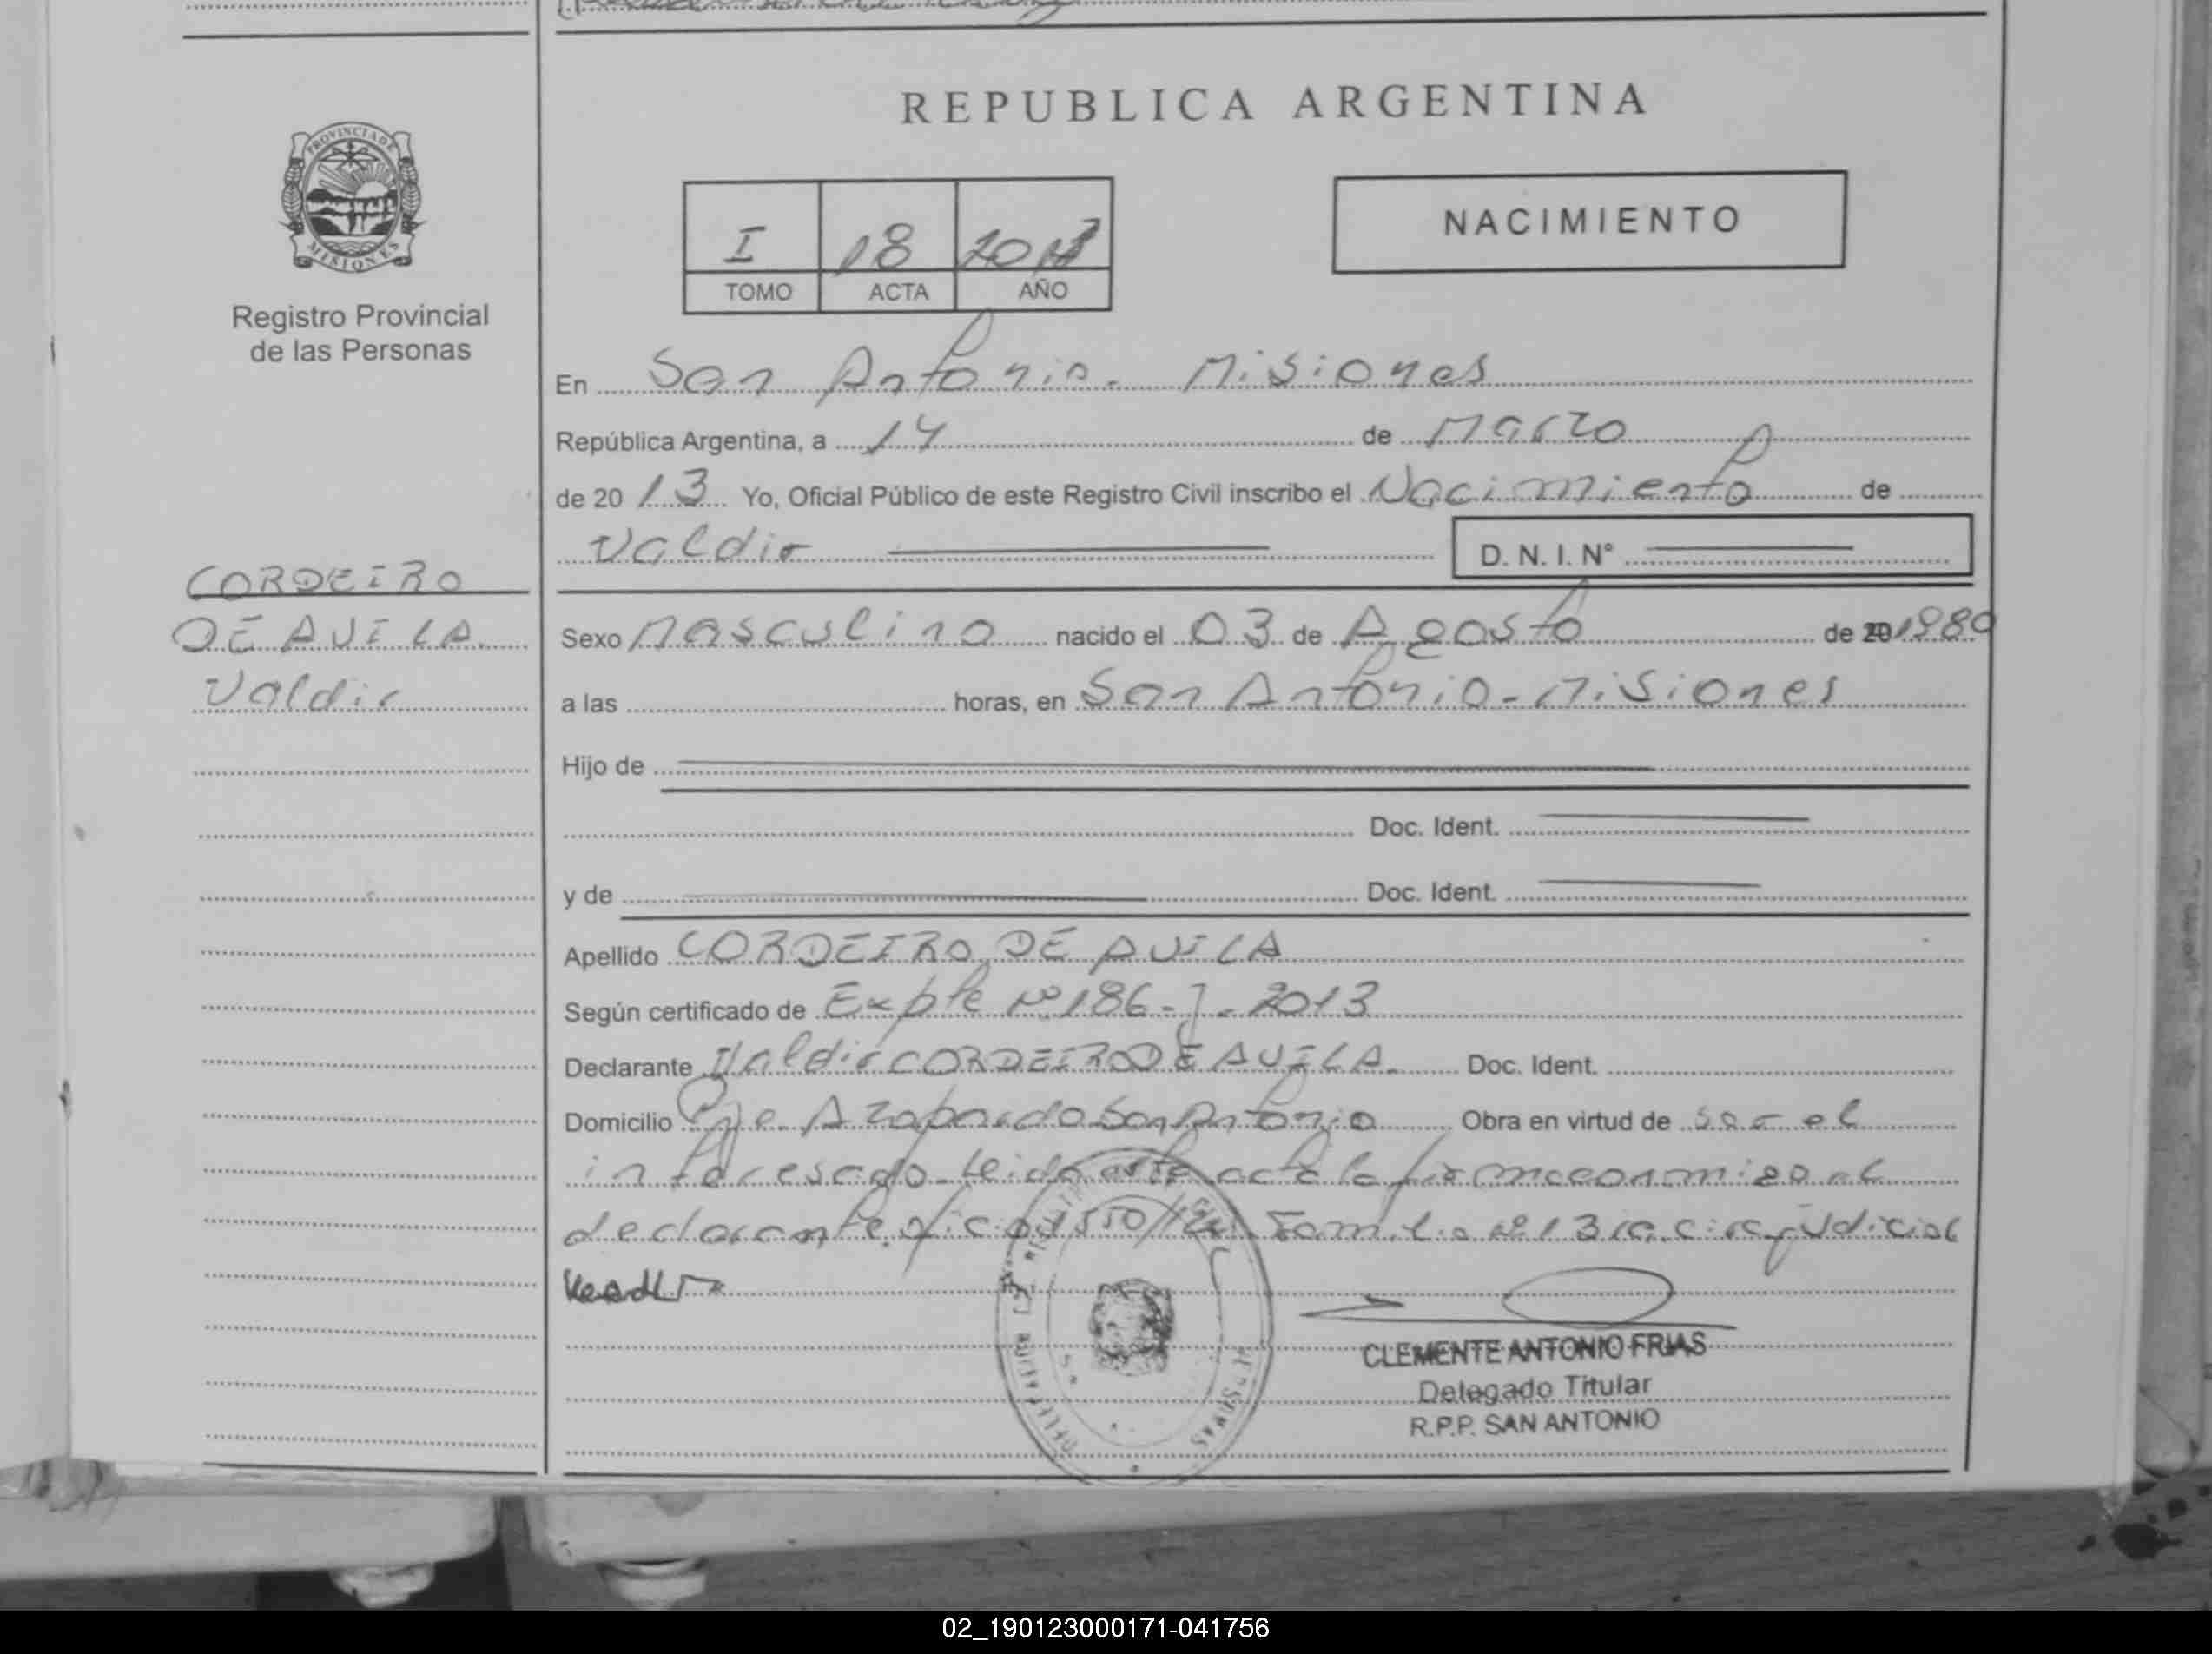 REPUBLICA ARGENTINA
PROVINCIA DE
MISIONES
Registro Provincial
de las Personas
I 18 2013
TOMO ACTA AÑO
NACIMIENTO
En San Antonio - Misiones
República Argentina, a 14 de Marzo
de 20 13 Yo, Oficial Público de este Registro Civil inscribo el Nacimiento de
Valdir D. N. I. N°
CORDEIRO
DE AVILA
Valdir
Sexo Masculino nacido el 03 de Agosto de 20 1980
a las horas, en San Antonio - Misiones
Hijo de
Doc. Ident.
y de Doc. Ident.
Apellido CORDEIRO DE AVILA
Según certificado de Expte Nº 186-J-2013
Declarante Valdir CORDEIRO DE AVILA. Doc. Ident.
Domicilio Pje. Azopardo San Antonio Obra en virtud de ser el
interesado. Leida este acta la firma conmigo el
declarante. Familia Nº 1 3ra. circ. judicial
CLEMENTE ANTONIO FRIAS
Delegado Titular
R.P.P. SAN ANTONIO
02_190123000171-041756